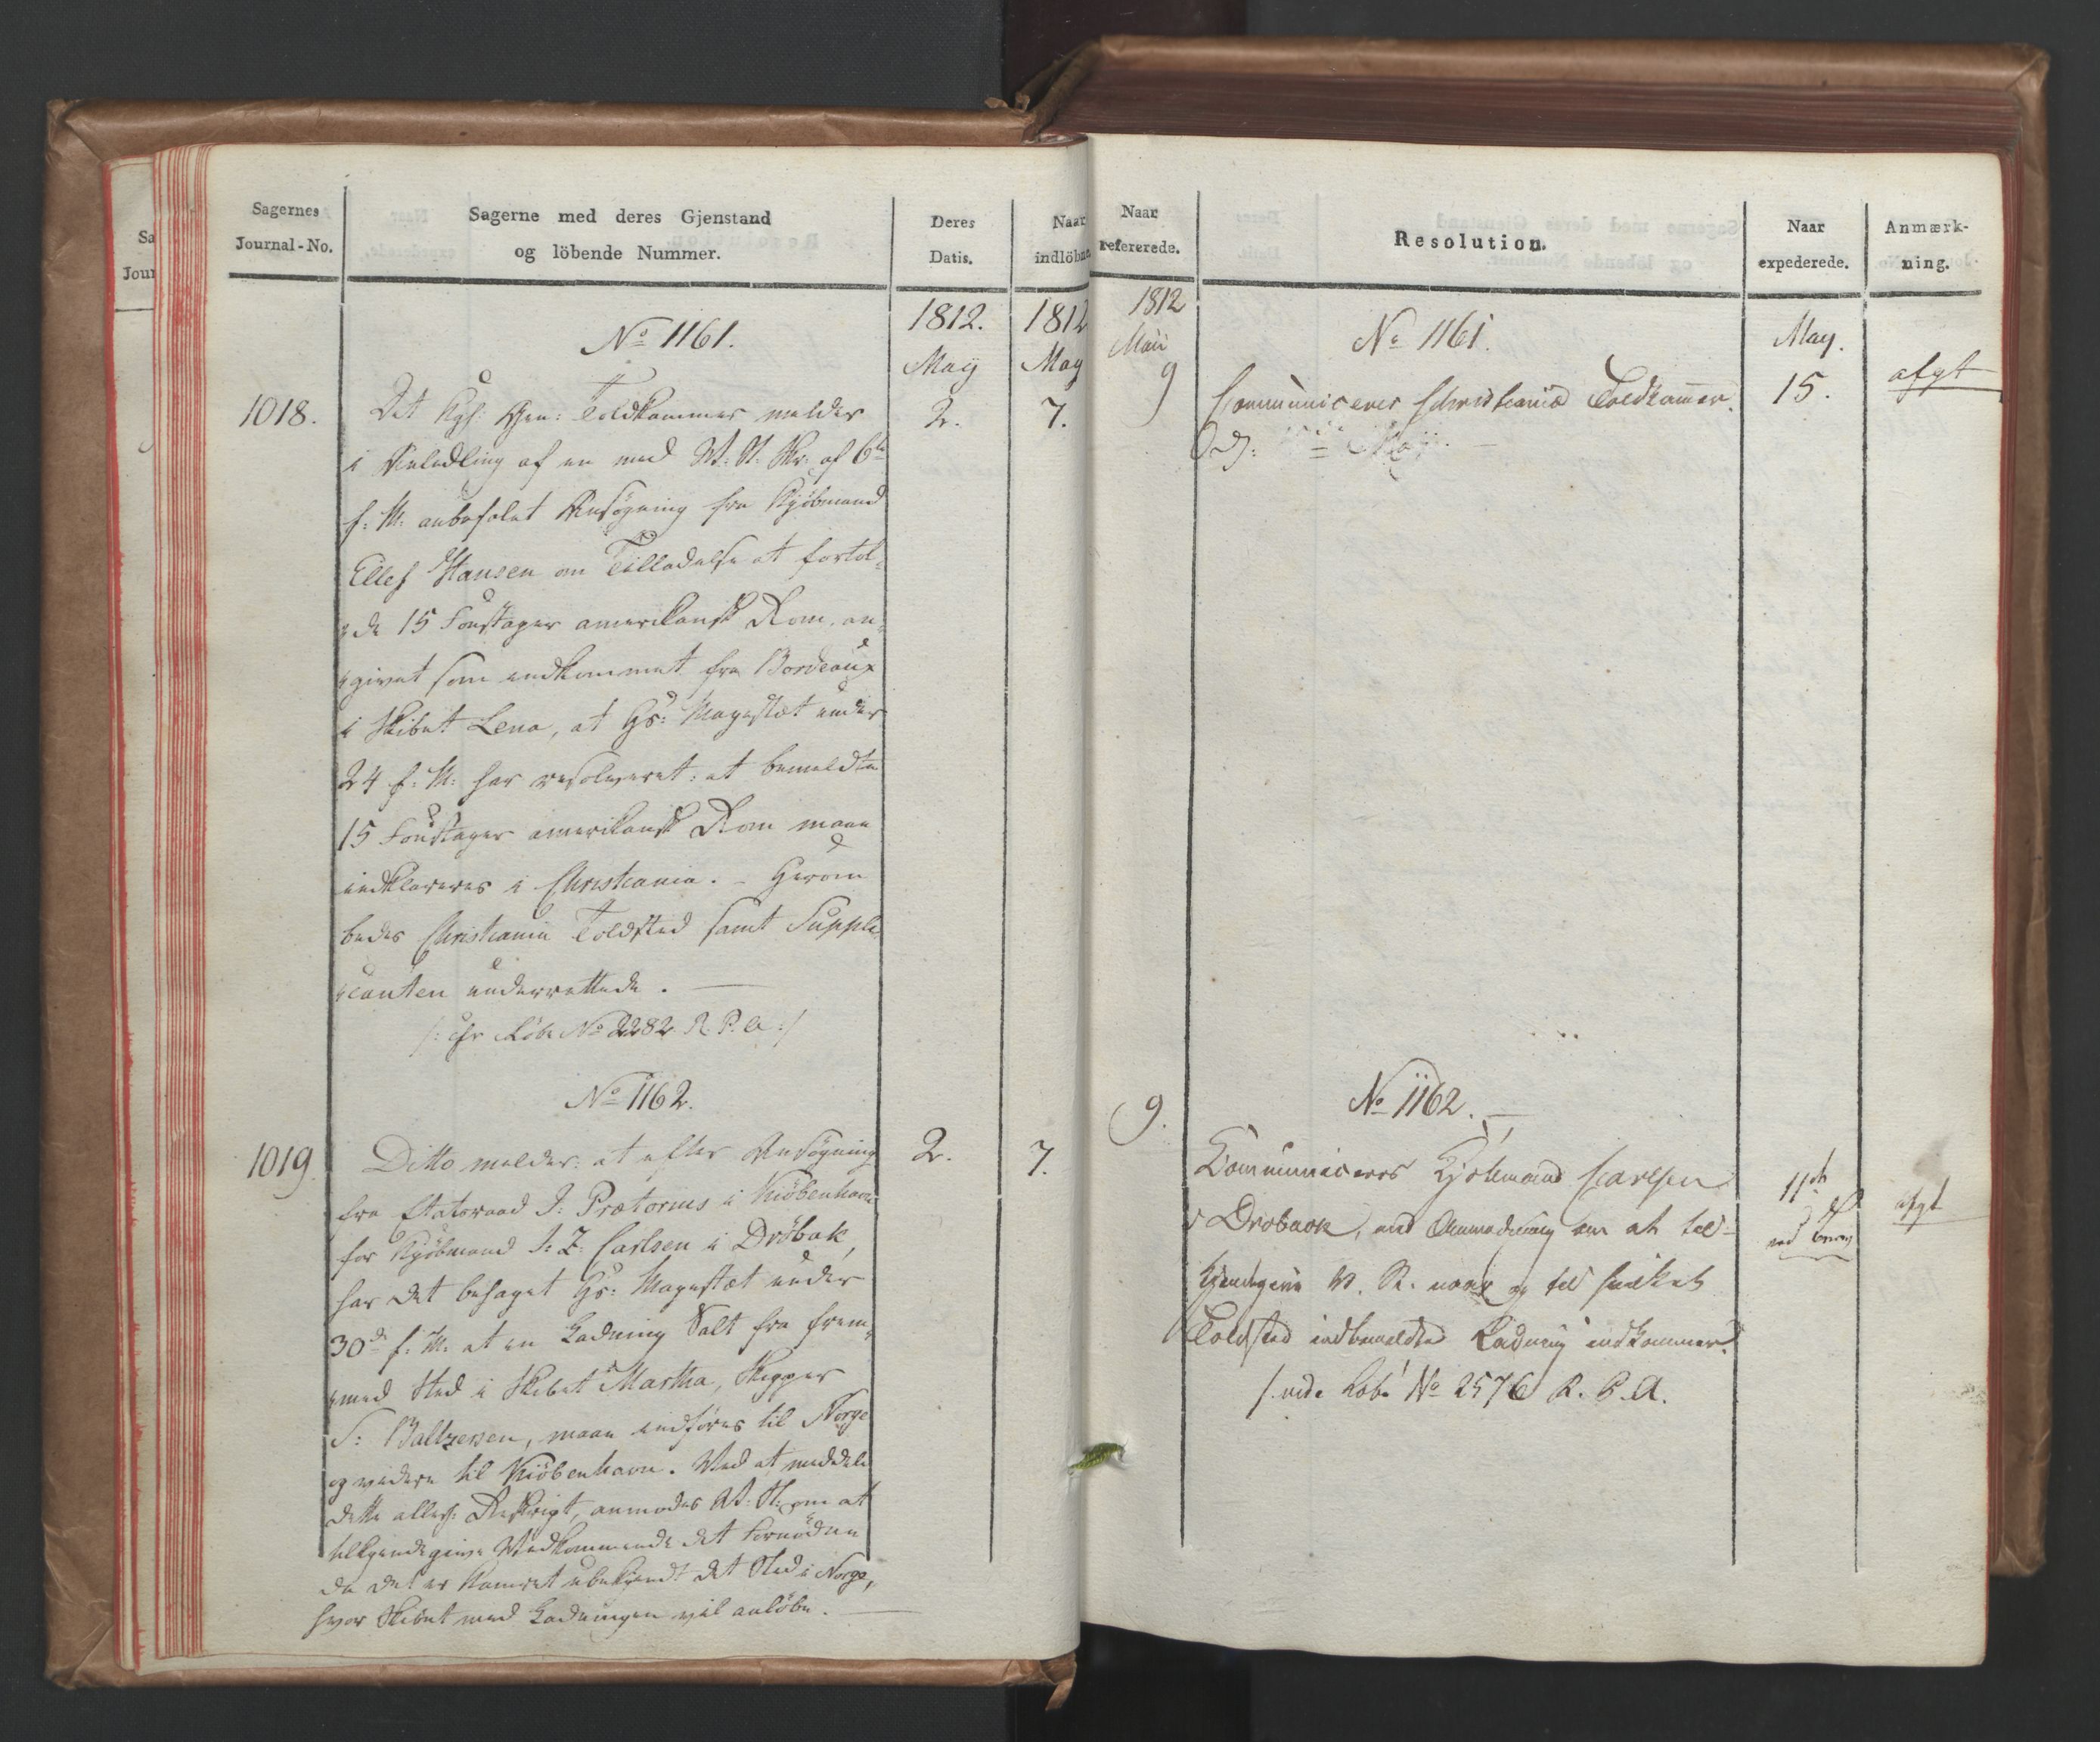 Sa
Jour
Sagernes
Journal-No.
Sagerne med deres Gjenstand
og löbende Nummer.
Deres
Datis.
Naar
indlöbne
1812.
1812
May
May
No 1161.
1018.
2.
7.
Det Kgl: Gen: Toldkammer melder
i Anledning af en med St: H: Skr: af 6te
f: M: anbefalet Ansøgning fra Kjøbmand
Ellef Hansen om Tilladelse at fortol-
de 15 Foustager amerikansk Rom, an-
givet som indkommet fra Bordeaux
i Skibet Lena, at Hs: Mayestæt under
24 f: M: har resolveret: at bemeldte
15 Foustager amerikansk Rom maae
indklareres i Christiania. – Herom
bedes Christiania Toldsted samt Suppli-
canten underrettede. —
/: cfr Løbe No 2282 R. P. A :/
No 1162.
1019.
2.
7.
Ditto melder: at efter Ansøgning
fra Etatsraad J: Prætorius i Kiöbenhavn
for Kjøbmand J: Z: Carlsen i Dröbak,
har det behaget Hs: Mayestæt under
30d f: M: at en Ladning Salt fra frem-
med Sted i Skibet Martha, Skipper
S: Baltzersen, maae indføres til Norge
og videre til Kiöbenhavn. Ved at meddele
dette allerh: Reskript, anmodes St: H: om at
tilkjendegive Vedkommende det fornødne
da det er Kamret ubekjendt det Sted i Norge,
hvor Skibet med Ladningen vil anløbe. —
Naar
refererede.
Resolution.
Naar
expederede.
Anmærk-
ning.
1812
Maii
9
No 1161.
May.
15.
afgt
Communiceres Christiania Toldkammer.
No 1162. —
9.
Communiceres Kjøbmand Carlsen
i Drøbach, med Anmodning om at til-
kjendegive St. H. naar og til hvilket
Toldsted indbemeldte Ladning indkommer.
/: vide Løbe No 2576 R. P. A.
11te
afgt